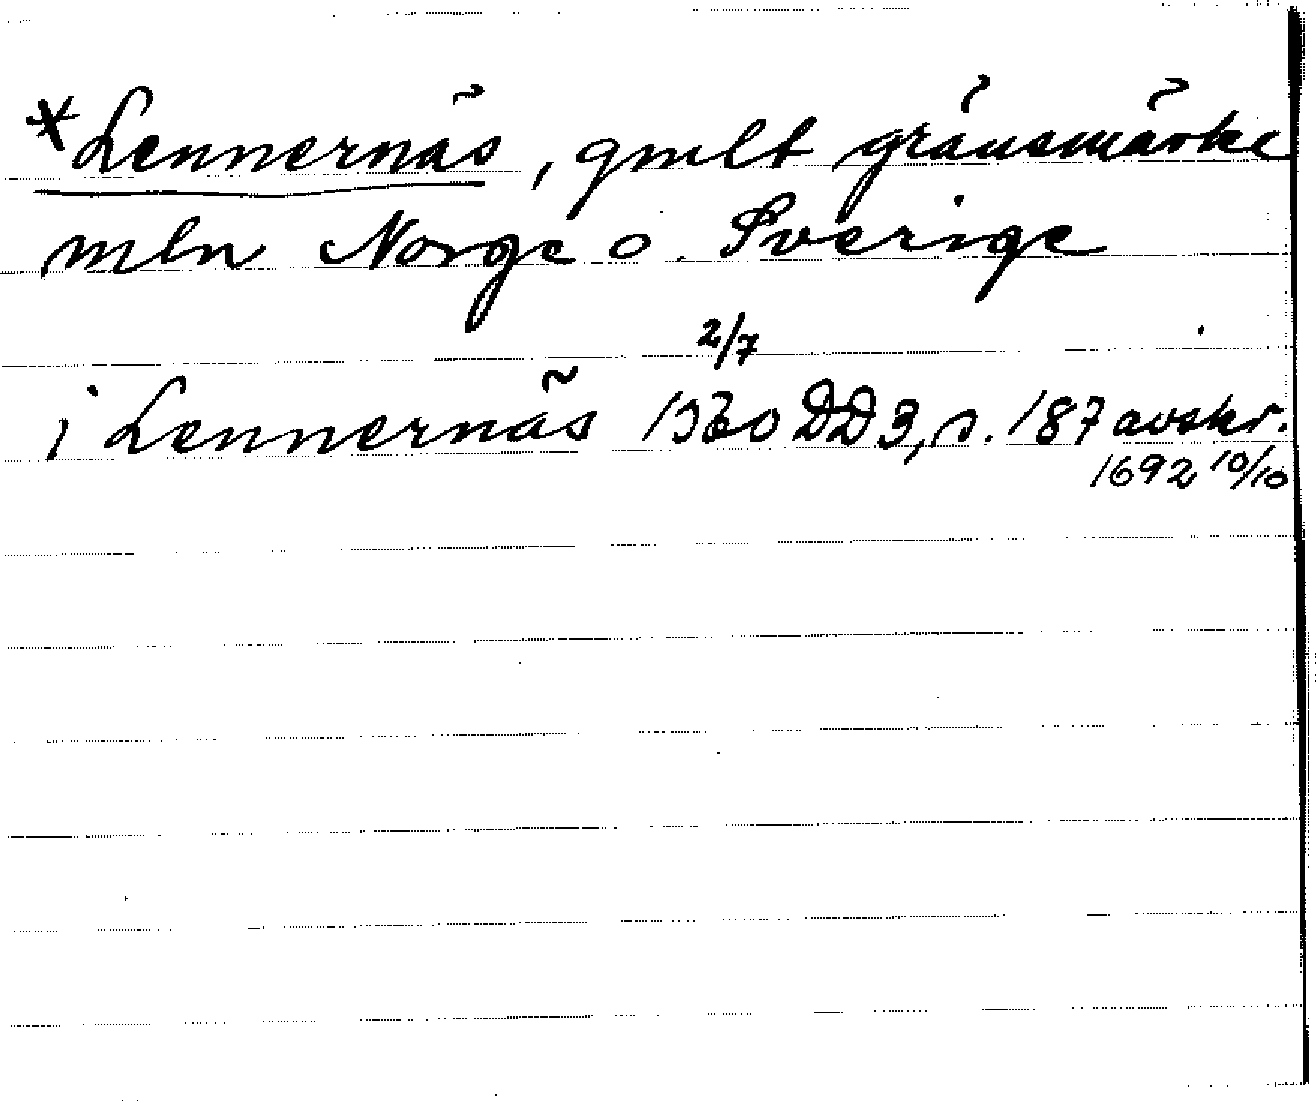 *Lennernäs, gmlt gränsmärke
mln Norge o. Sverige
2/7
i Lennernäs DD3, s. 187 avskr.
1692 10/10